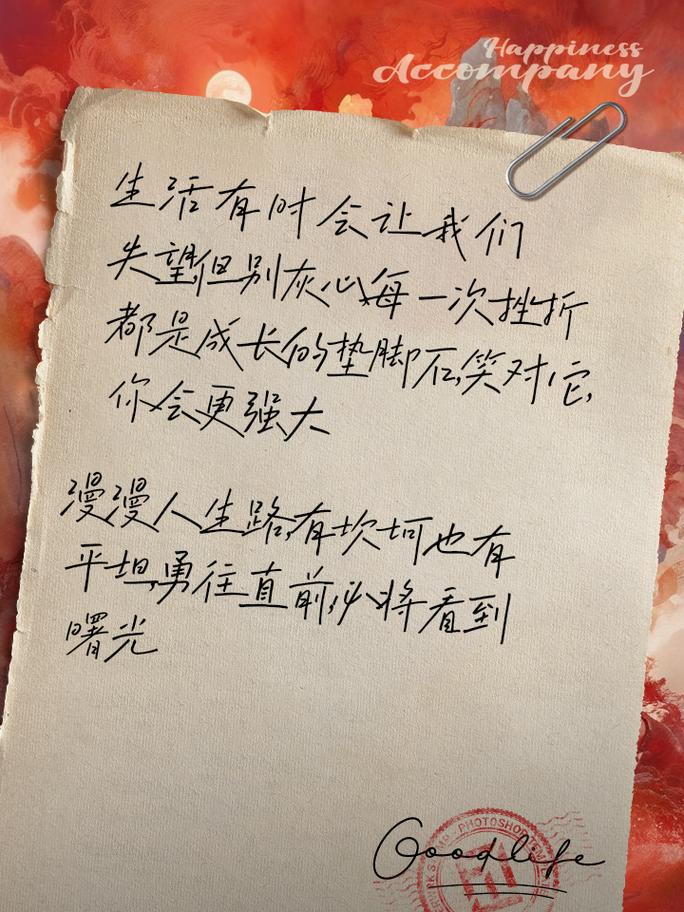 Happiness
Accompany
生活有时会让我们
失望,但别灰心,每一次挫折
都是成长的垫脚石,笑对它,
你会更强大
漫漫人生路,有坎坷也有
平坦,勇往直前,必将看到
曙光
PHOTOSHOP
Goodlife